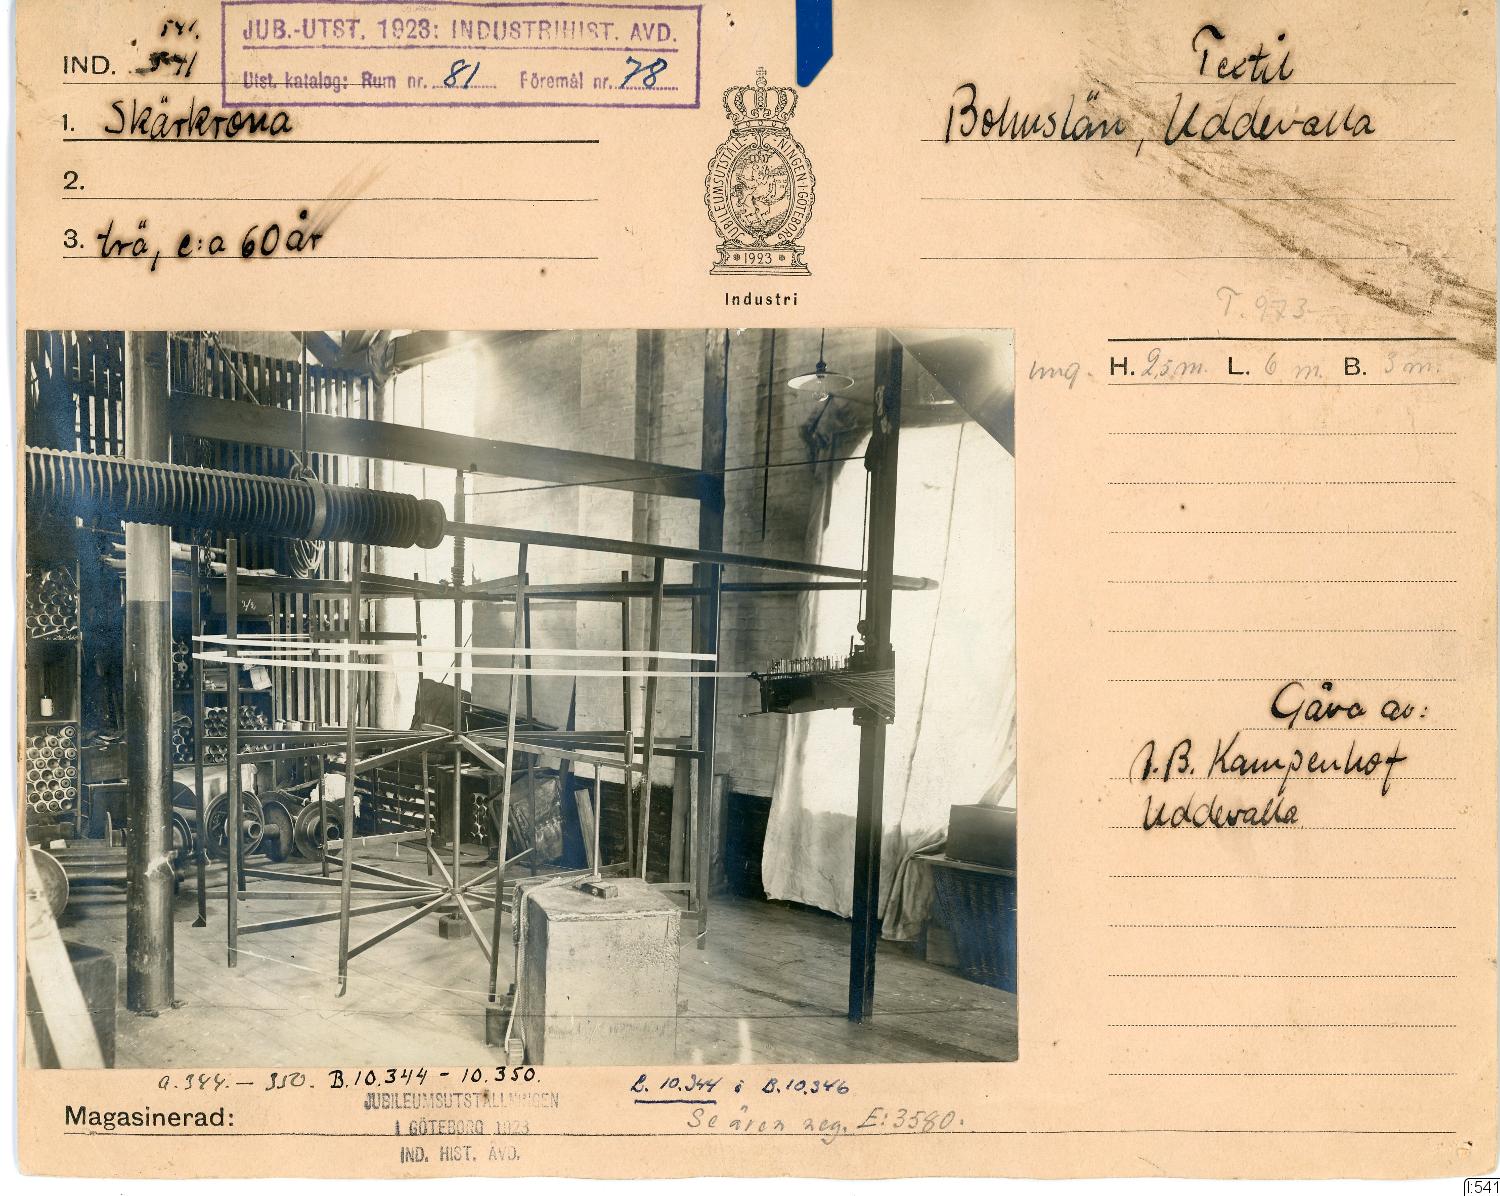 541.
IND. 541
JUB.-UTST. 1923: INDUSTRIHIST. AVD.
Utst. katalog: Rum nr. 81 Föremål nr. 78
Textil
1. Skärkrona
Bohuslän, Uddevalla
2.
3. trä, c:a 60 år
JUBILEUMSUTSTÄLLNINGEN I GÖTEBORG
* 1923 *
Industri
T. 973
ung. H. 2,5 m. L. 6 m. B. 3 m.
Gåva av:
A.B. Kampenhof
Uddevalla
a. 344. — 350. B.10.344 - 10.350.
B. 10.344 & B.10.346
Magasinerad:
JUBILEUMSUTSTÄLLNINGEN
I GÖTEBORG 1923
IND. HIST. AVD.
Se även neg. E:3580.
I:541